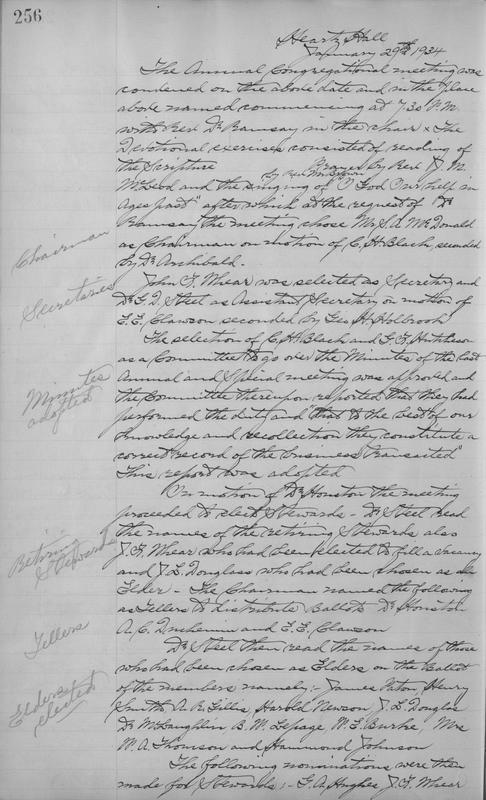 256
Heartz Hall
January 29th 1934
The Annual Congregational meeting was
convened on the above date and in the place
above named commencing at 7.30 P.M.
with Rev Dr Ramsay in the chair x The
Devotional exercises consisted of reading of
the Scripture by Rev Wm Brown Prayer by Rev J. M.
McLeod and the singing of "O God Our help in
Ages past" after which at the request of Dr
Ramsay the meeting chose Mr S. A. McDonald
Chairman
as Chairman on motion of C. H. Black, seconded
by Dr Archibald.
Secretaries
John F. Whear was selected as Secretary and
Dr G. D. Steel as Assistant Secretary on motion of
E. E. Clawson seconded by Geo H. Holbrook
The selection of C. H. Black and G. F. Hutcheson
as a Committee to go over the Minutes of the last
Minutes adopted
Annual and Special meeting was approved and
the Committee thereupon reported that they had
performed the duty and "that to the best of our
knowledge and recollection they constitute a
correct record of the business transacted"
This report was adopted
On motion of Dr Houston the meeting
proceeded to elect Stewards - Dr Steel read
Retiring Stewards
the names of the retiring Stewards also
J. F. Whear who had been elected to fill a vacancy
and J. L. Douglass who had been chosen as an
Elder - The Chairman named the following
Tellers
as Tellers to distribute Ballots Dr Houston
A. C. Duchemin and E. E. Clawson
Dr Steel then read the names of those
who had been chosen as Elders on the Ballot
Elders elected
of the members namely:- James Paton, Henry
Smith A. R. Gillis, Harold Newson, J. L. Douglas
Dr McLaughlin B. W. Lepage, W. E. Burke, Mrs
W. A. Thomson and Hammond Johnson
The following nominations were then
made for Stewards:- G. A. Hughes, J. F. Whear